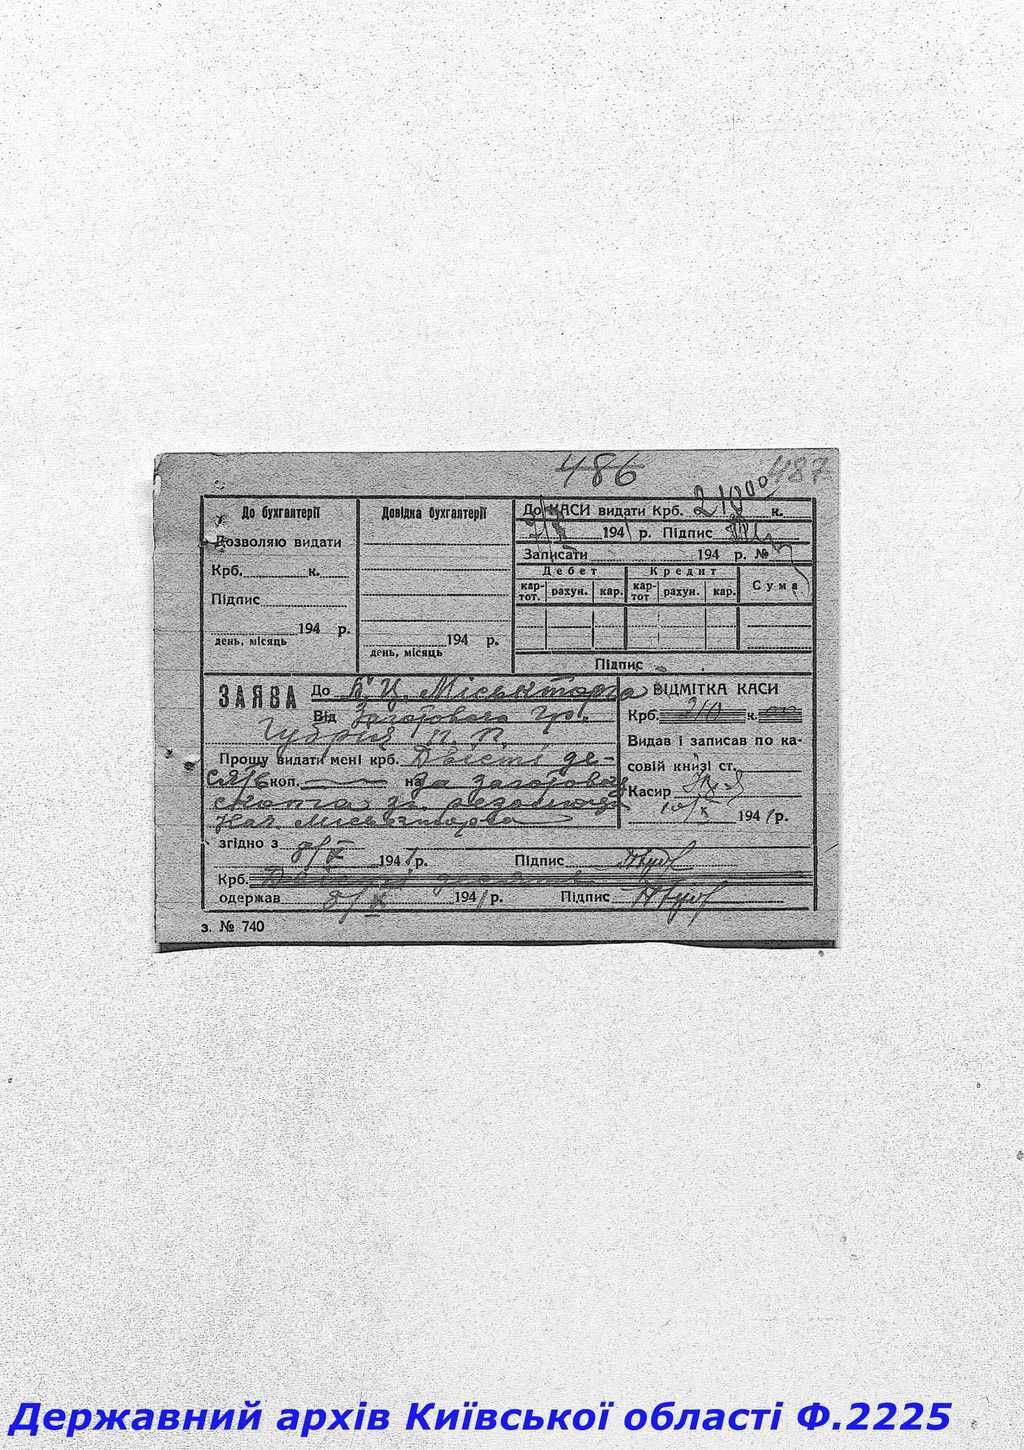 486 487
До бухгалтерії
Дозволяю видати
Крб. к.
Підпис
194 р.
день, місяць
Довідка бухгалтерії
194 р.
день, місяць
До КАСИ видати Крб. 210 00 к.
194 р. Підпис
Записати 194 р. №
Дебет Кредит Сума
кар-тот. рахун. кар. кар-тот рахун. кар.
Підпис
ЗАЯВА До Міськторга
Від Заготового гр.
Губрія П. П.
Прошу видати мені крб. Двісті де-
сять коп. на за
зг. резолюції
Нач. Міськторга
ВІДМІТКА КАСИ
Крб. 210 к. 00
Видав і записав по ка-
совій книзі ст.
Касир
10/X 1941 р.
згідно з 8/X 1941 р. Підпис
Крб. Двісті десять
одержав 8/X 1941 р. Підпис
з. № 740
Державний архів Київської області Ф.2225